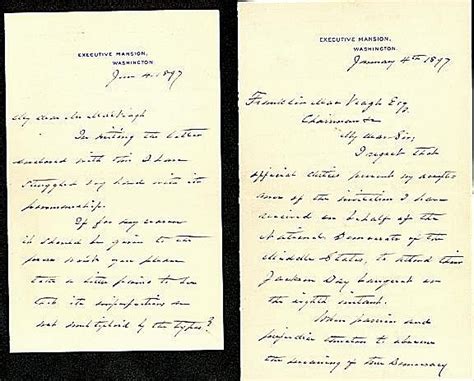 EXECUTIVE MANSION,
WASHINGTON.
Jan 4. 1897
My dear Mr MacVeagh
In writing the letter
enclosed with this I have
struggled very hard with its
penmanship.
If for any reason
it should be given to the
press won't you please
take a little pains to
its imperfections are
not multiplied by the types?
EXECUTIVE MANSION,
WASHINGTON.
January 4th 1897
Franklin MacVeagh Esq
Chairman &c
My dear Sir,
I regret that
official duties prevent my accept
ance of the invitation I have
received on behalf of the
National Democrats of the
Middle States, to attend their
Jackson Day banquet on
the eighth instant.
When passion and
prejudice threaten to obscure
the meaning of true Democracy